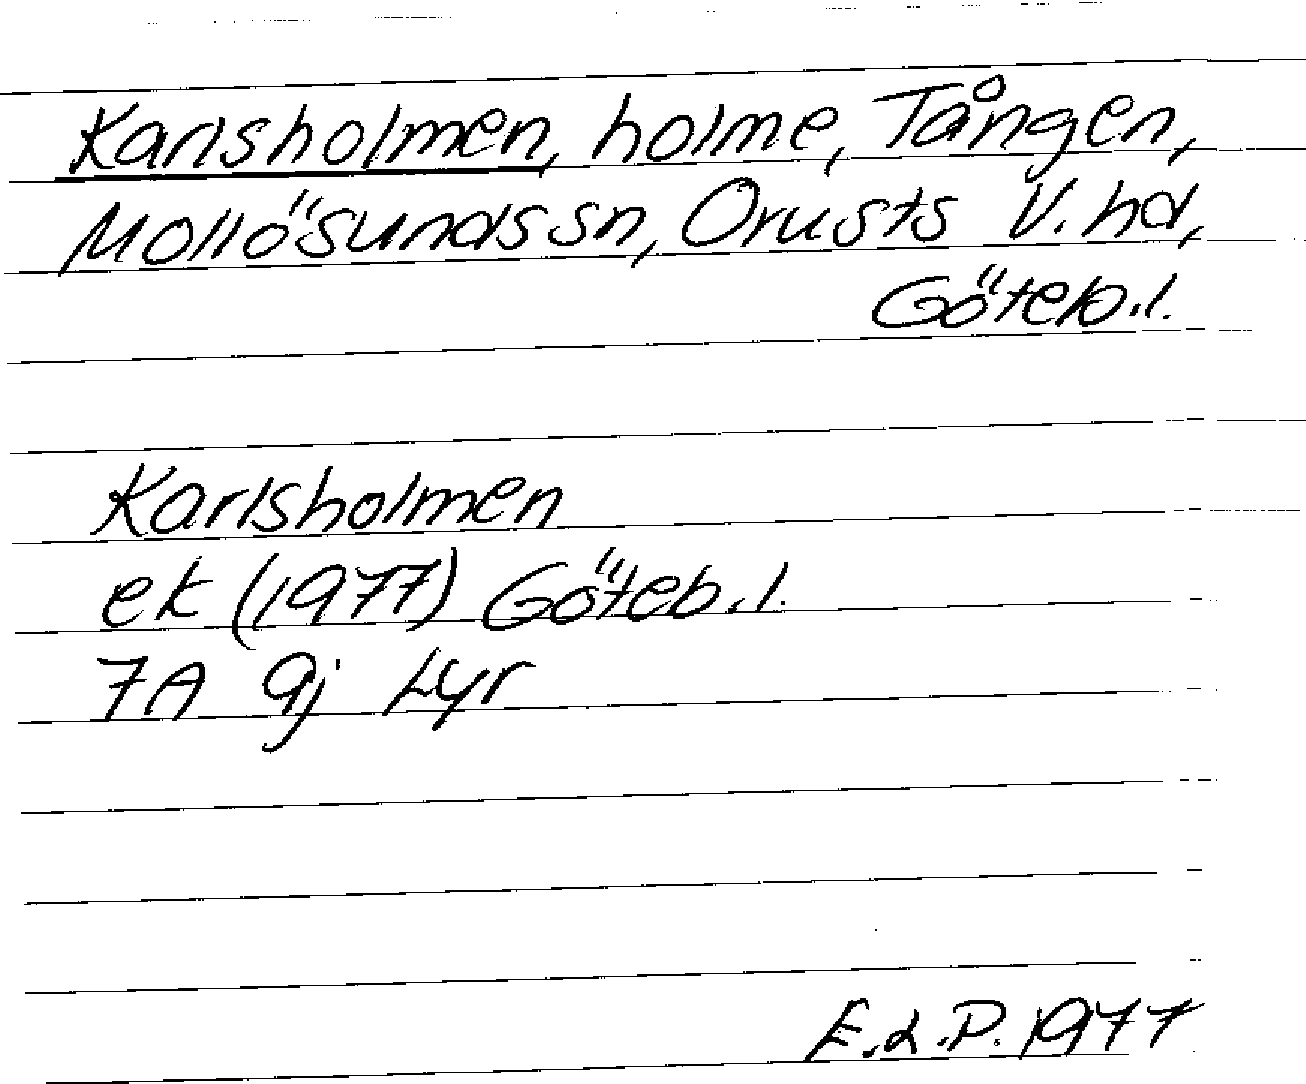 Karlsholmen, holme, Tången,
Mollösunds sn, Orusts V. hd,
Göteb. l.
Karlsholmen
ek (1977) Göteb. l.
7A 9j Lyr
E.L.P. 1977